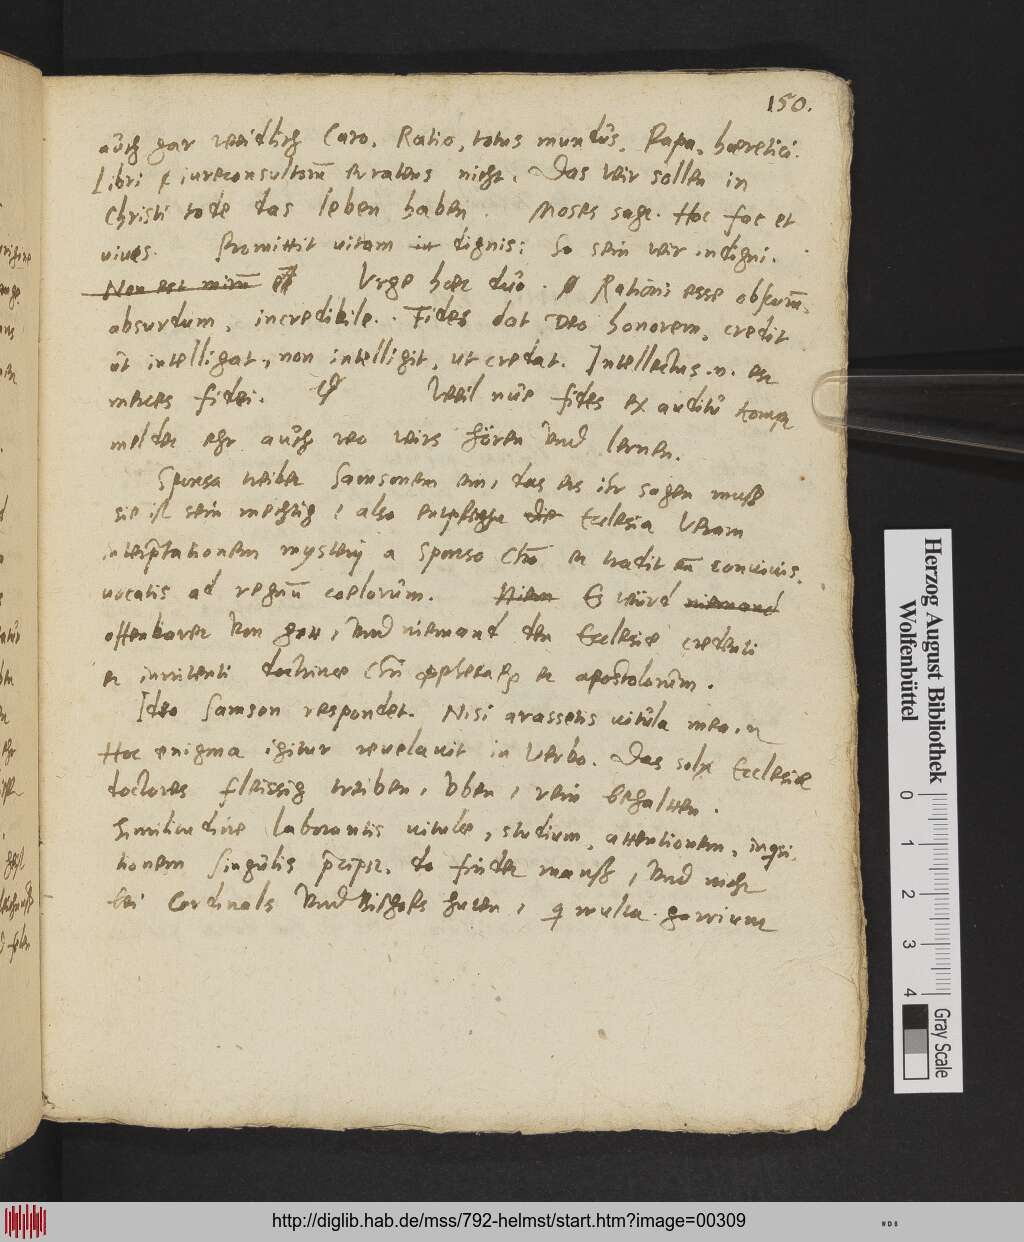 150.
auch gar weidlich Caro, Ratio, totus mundus, Papa, haeretici.
Libri iureconsultorum erratens nicht. Das wir sollen in
Christi tode das leben haben. Moses sagt. Hoc fac et
vives. Promittit vitam dignis: So sein wir indigni.
Non est mirum Urge haec duo. Rationi esse obscurum,
absurdum, incredibile. Fides dat Deo honorem, credit
ut intelligat, non intelligit, ut credat. Intellectus .n. est
merces fidei. Weil nue fides ex auditu
meldet ehr auch wo wirs hören vnd lernen.
Sponsa treibet Samsonem ein, das ers ihr sagen muss
sie ist sein mechtig, also Ecclesia veram
interpretationem mysterij a Sponso Christo et tradit convivis,
vocatis ad regnum coelorum. Niem Es würd niemand
offenbaret von gott, vnd niemand den Ecclesiae credenti
et innitenti doctrinae Christi prophetarum et apostolorum.
Ideo Samson respondet. Nisi arassetis vitula mea. et
Hoc enigma igitur revelavit in verbo. Das Ecclesiae
doctores fleissig treiben, vben, rein behalten.
Similitudine laborantis vitulae, studium, attentionem,
singulis praecipit. do findet manss, vnd nicht
bei Cardinals vnd Bischofs huten, multa
Herzog August Bibliothek
Wolfenbüttel
0 1 2 3 4
Gray Scale
http://diglib.hab.de/mss/792-helmst/start.htm?image=00309